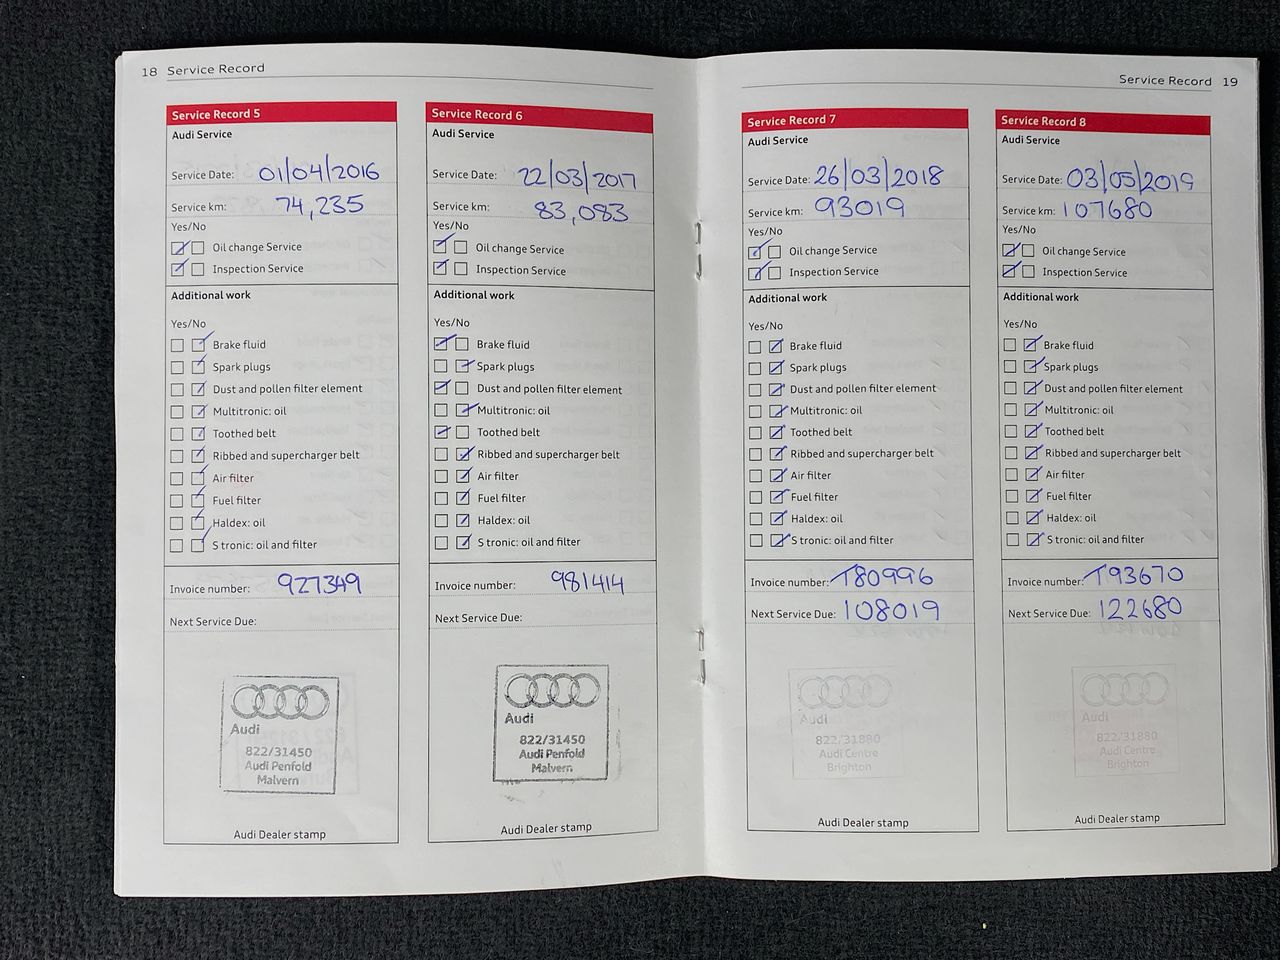 18 Service Record
Service Record 5
Audi Service
Service Date: 01/04/2016
Service km: 74,235
Yes/No
Oil change Service
Inspection Service
Additional work
Yes/No
Brake fluid
Spark plugs
Dust and pollen filter element
Multitronic: oil
Toothed belt
Ribbed and supercharger belt
Air filter
Fuel filter
Haldex: oil
S tronic: oil and filter
Invoice number: 927349
Next Service Due:
Audi
822/31450
Audi Penfold
Malvern
Audi Dealer stamp
Service Record 6
Audi Service
Service Date: 22/03/2017
Service km: 83,083
Yes/No
Oil change Service
Inspection Service
Additional work
Yes/No
Brake fluid
Spark plugs
Dust and pollen filter element
Multitronic: oil
Toothed belt
Ribbed and supercharger belt
Air filter
Fuel filter
Haldex: oil
S tronic: oil and filter
Invoice number: 981414
Next Service Due:
Audi
822/31450
Audi Penfold
Malvern
Audi Dealer stamp
Service Record 19
Service Record 7
Audi Service
Service Date: 26/03/2018
Service km: 93019
Yes/No
Oil change Service
Inspection Service
Additional work
Yes/No
Brake fluid
Spark plugs
Dust and pollen filter element
Multitronic: oil
Toothed belt
Ribbed and supercharger belt
Air filter
Fuel filter
Haldex: oil
S tronic: oil and filter
Invoice number: T80996
Next Service Due: 108019
Audi
822/31880
Audi Centre
Brighton
Audi Dealer stamp
Service Record 8
Audi Service
Service Date: 03/05/2019
Service km: 107680
Yes/No
Oil change Service
Inspection Service
Additional work
Yes/No
Brake fluid
Spark plugs
Dust and pollen filter element
Multitronic: oil
Toothed belt
Ribbed and supercharger belt
Air filter
Fuel filter
Haldex: oil
S tronic: oil and filter
Invoice number: T93670
Next Service Due: 122680
Audi
822/31880
Audi Centre
Brighton
Audi Dealer stamp